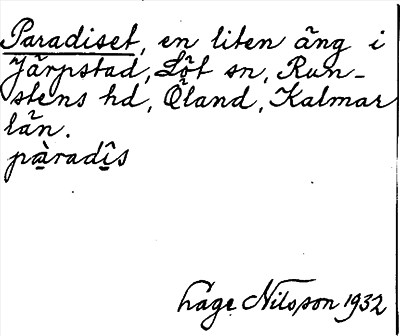 Paradiset, en liten äng i
Järpstad, Löt sn, Run-
stens hd, Öland, Kalmar
län.
pàradîs
Tage Nilsson 1932